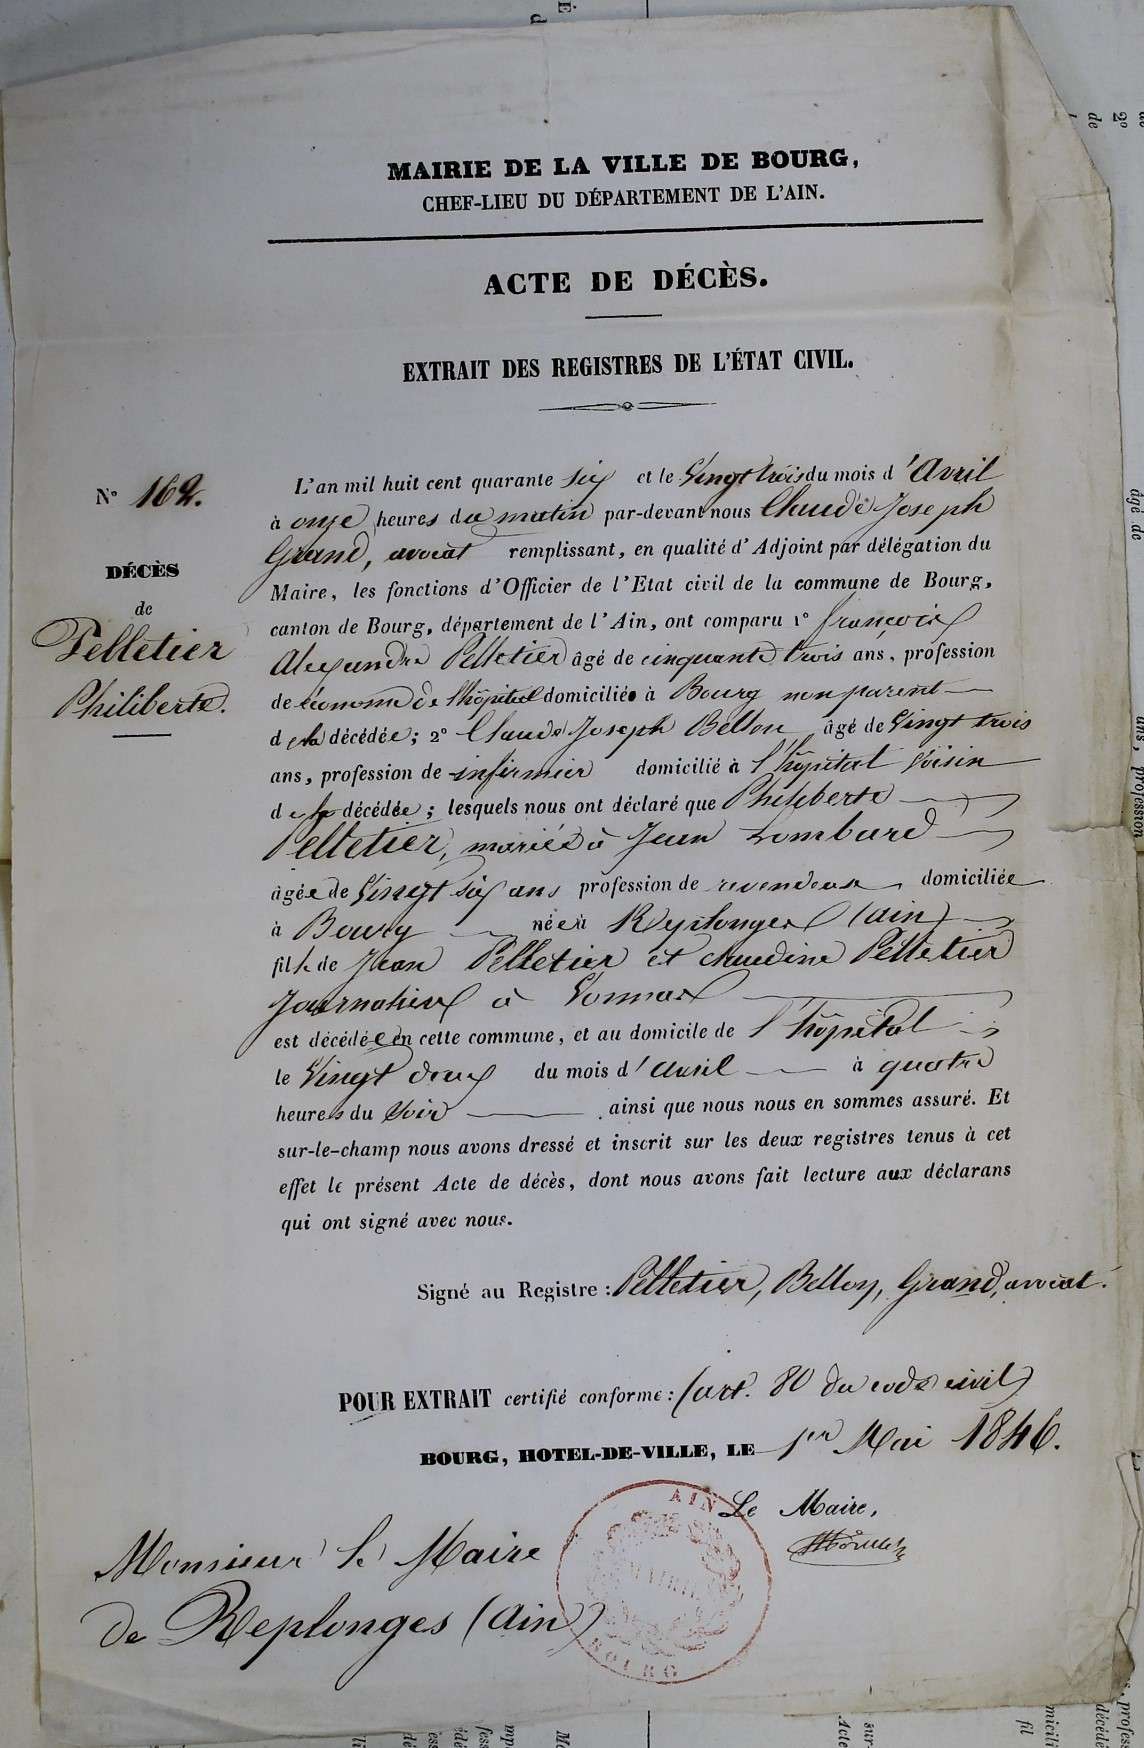 MAIRIE DE LA VILLE DE BOURG,
CHEF-LIEU DU DÉPARTEMENT DE L'AIN.
ACTE DE DÉCÈS.
EXTRAIT DES REGISTRES DE L'ÉTAT CIVIL.
N° 162.
DÉCÈS
de
Pelletier
Philiberte.
L'an mil huit cent quarante six et le Vingt trois du mois d'Avril
à onze heures du matin par-devant nous Claude Joseph
Grand, avocat remplissant, en qualité d'Adjoint par délégation du
Maire, les fonctions d'Officier de l'Etat civil de la commune de Bourg,
canton de Bourg, département de l'Ain, ont comparu 1° françois
Alexandre Pelletier âgé de cinquante trois ans, profession
de économe de l'hôpital domicilié à Bourg non parent
de la décédée; 2° Claude Joseph Bellon âgé de Vingt trois
ans, profession de infirmier domicilié à l'hôpital Voisin
de la décédée; lesquels nous ont déclaré que Philiberte
Pelletier, mariée à Jean Lombard
âgée de Vingt six ans profession de revendeuse domiciliée
à Bourg née à Replonges (ain)
fille de Jean Pelletier et claudine Pelletier
Journaliers à Vonnas
est décédée en cette commune, et au domicile de l'hôpital
le Vingt deux du mois d'avril à quatre
heures du Soir ainsi que nous nous en sommes assuré. Et
sur-le-champ nous avons dressé et inscrit sur les deux registres tenus à cet
effet le présent Acte de décès, dont nous avons fait lecture aux déclarans
qui ont signé avec nous.
Signé au Registre: Pelletier, Bellon, Grand, avocat.
POUR EXTRAIT certifié conforme: (art. 80 du code civil)
BOURG, HOTEL-DE-VILLE, LE 1er Mai 1846.
Le Maire,
AIN
MAIRIE
BOURG
Monsieur le Maire
de Replonges (ain)